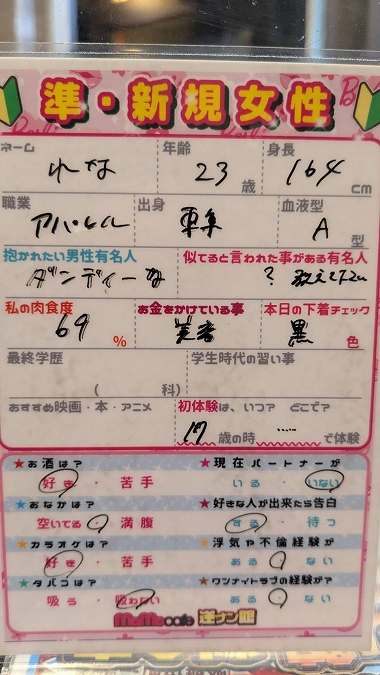 準・新規女性
ネーム 年齢 身長
れな 23歳 164cm
職業 出身 血液型
アパレル 東京 A型
抱かれたい男性有名人 似てると言われた事がある有名人
ダンディーな ? 教えて
私の肉食度 お金をかけている事 本日の下着チェック
69% 美容 黒色
最終学歴 学生時代の習い事
( 科)
おすすめ映画・本・アニメ 初体験は、いつ? どこで?
17歳の時 ……で体験
★お酒は? ★現在パートナーが
好き・苦手 いる・いない
★おなかは? ★好きな人が出来たら告白
空いてる・満腹 する・待つ
★カラオケは? ★浮気や不倫経験が
好き・苦手 ある・ない
★タバコは? ★ワンナイトラブの経験が?
吸う・吸わない ある・ない
MoMo cafe 逆ナン館